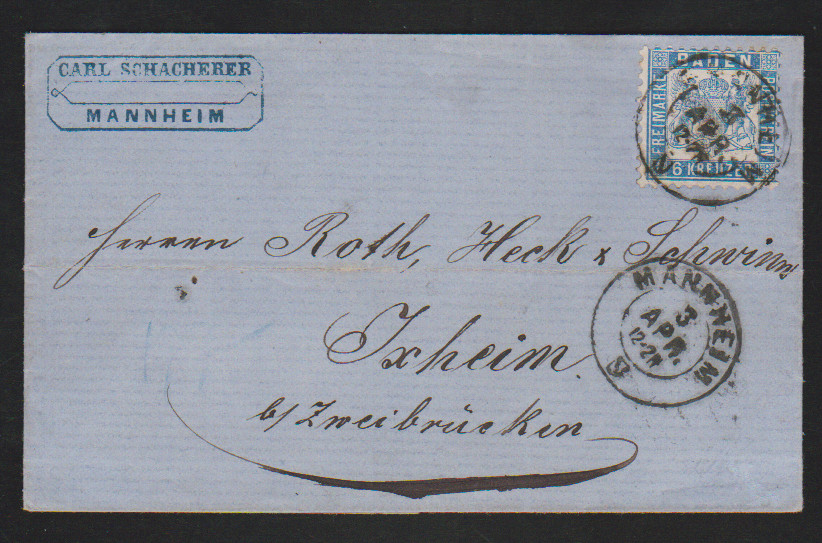 CARL SCHACHERER
MANNHEIM
BADEN
FREIMARKE
6 KREUZER
APR.
Herren Roth, Heck & Schwinn
Ixheim
b/ Zweibrücken
MANNHEIM
3
APR.
12-2N